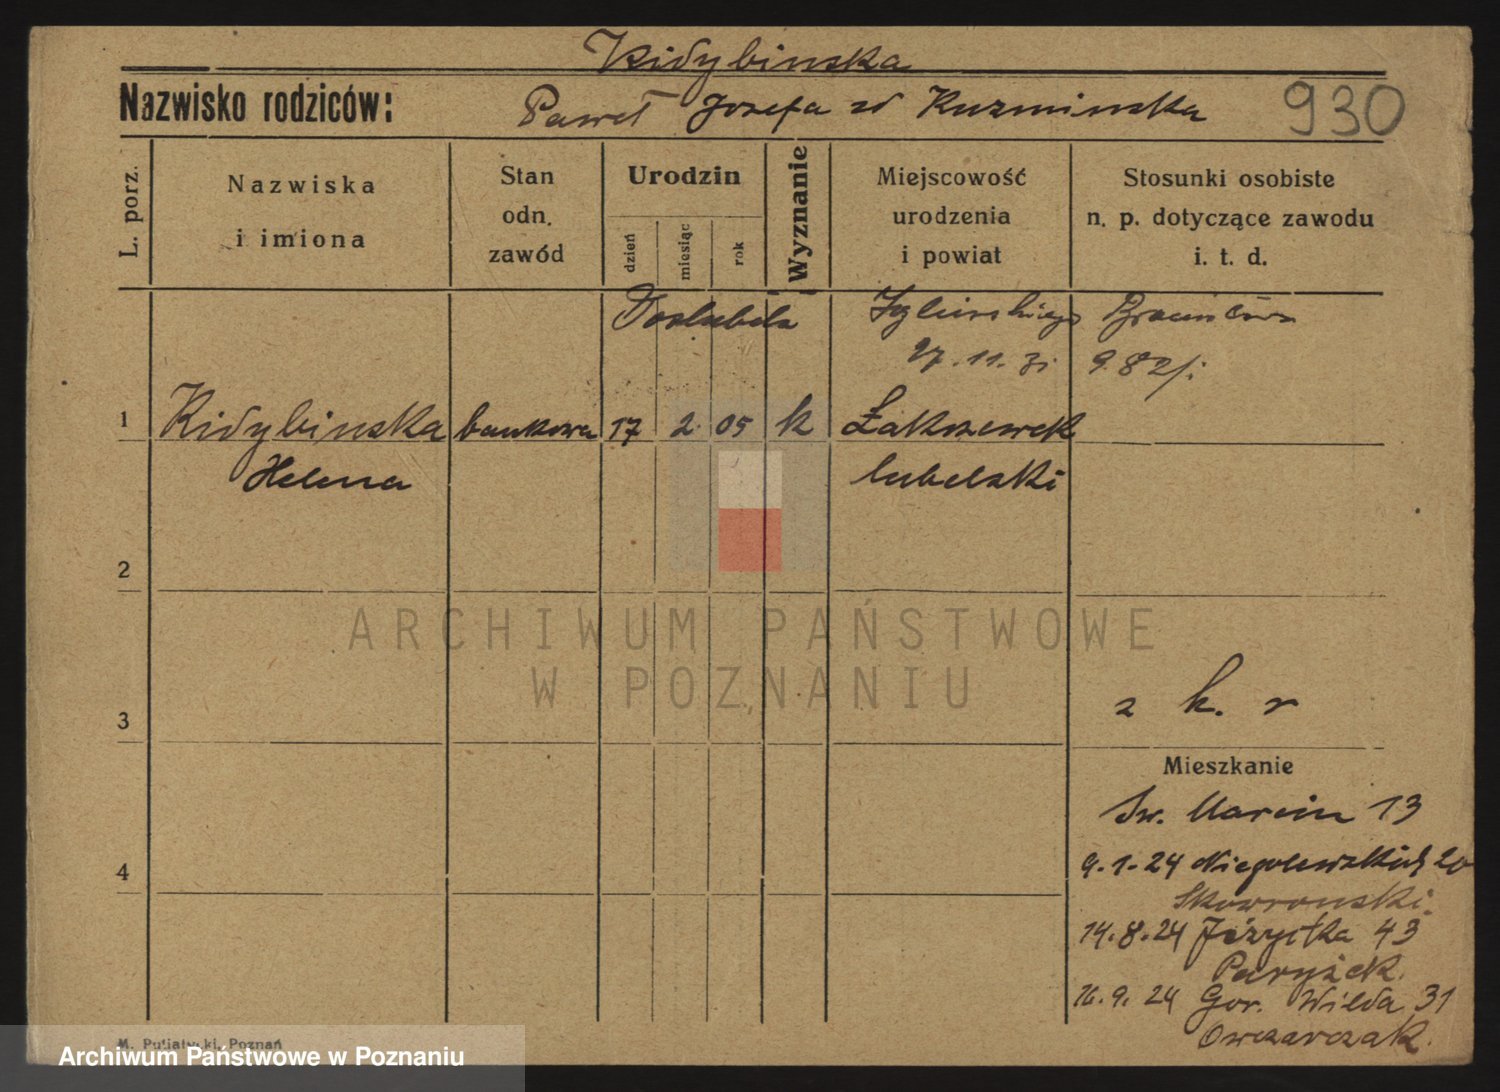 Kidybinska
Nazwisko rodziców: Paweł Jozefa zd Kuzminska 930
L. porz.
Nazwiska
i imiona
Stan
odn.
zawód
Urodzin
dzień
miesiąc
rok
Wyznanie
Miejscowość
urodzenia
i powiat
Stosunki osobiste
n. p. dotyczące zawodu
i. t. d.
Poslubila
27.11.31 9.82/i
1 Kidybinska bankowa 17 2 05 k Zakrzewek
Helena lubelski
2
ARCHIWUM PAŃSTWOWE
W POZNANIU
z k. r
3
Mieszkanie
Św. Marcin 13
4
9.1.24 Niegolewskich 20
Skowronski
14.8.24 Jeżycka 43
Paryżek.
16.9.24 Gor. Wilda 31
Owczarczak.
M. Putiatycki, Poznań
Archiwum Państwowe w Poznaniu